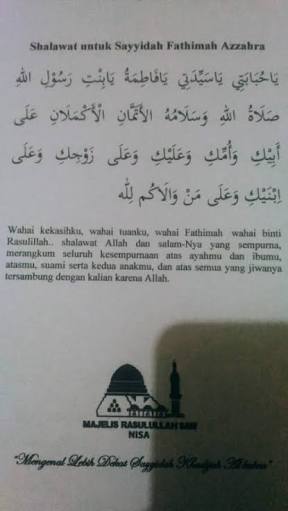 Shalawat untuk Sayyidah Fathimah Azzahra
يَاحُبَابَتِي يَاسَيِّدَتِي يَافَاطِمَةُ يَابِنْتِ رَسُوْلِ اللهِ
صَلَاةُ اللهِ وَسَلَامُهُ الْأَتَمَّانِ الْأَكْمَلَانِ عَلَى
أَبِيْكِ وَأُمِّكِ وَعَلَيْكِ وَعَلَى زَوْجِكِ وَعَلَى
اِبْنَيْكِ وَعَلَى مَنْ وَالَاكُم لِلّٰه
Wahai kekasihku, wahai tuanku, wahai Fathimah wahai binti
Rasulillah.. shalawat Allah dan salam-Nya yang sempurna,
merangkum seluruh kesempurnaan atas ayahmu dan ibumu,
atasmu, suami serta kedua anakmu, dan atas semua yang jiwanya
tersambung dengan kalian karena Allah.
MAJELIS RASULULLAH SAW
NISA
"Mengenal Lebih Dekat Sayyidah Khadijah Al kubra"